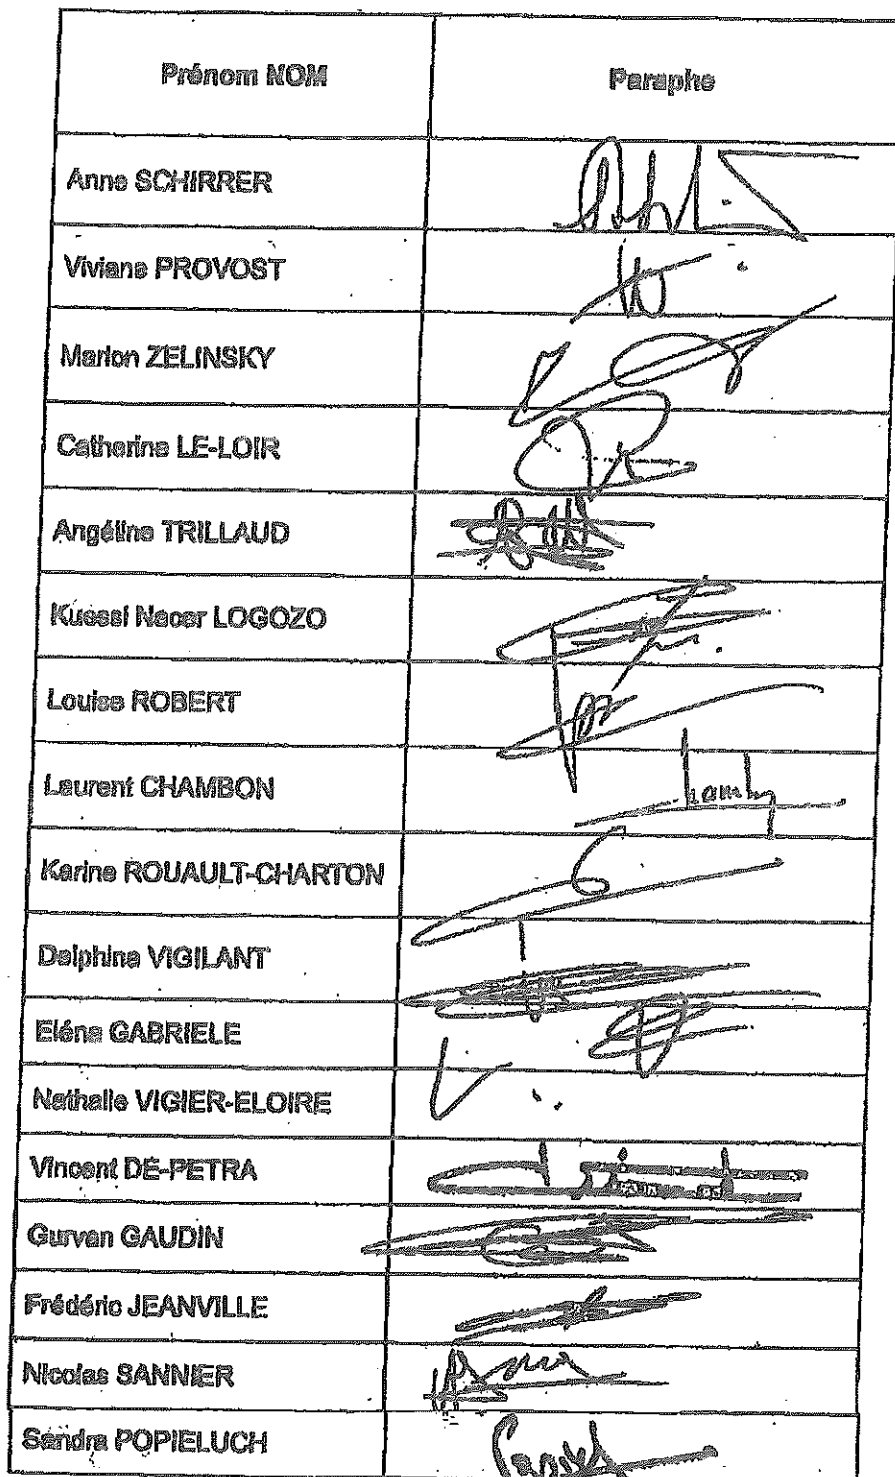 Prénom NOM Paraphe
Anne SCHIRRER
Viviane PROVOST
Marion ZELINSKY
Catherine LE-LOIR
Angéline TRILLAUD
Kuessi Nacer LOGOZO
Louise ROBERT
Laurent CHAMBON
Karine ROUAULT-CHARTON
Delphine VIGILANT
Eléna GABRIELE
Nathalie VIGIER-ELOIRE
Vincent DE-PETRA
Gurvan GAUDIN
Frédéric JEANVILLE
Nicolas SANNIER
Sandra POPIELUCH